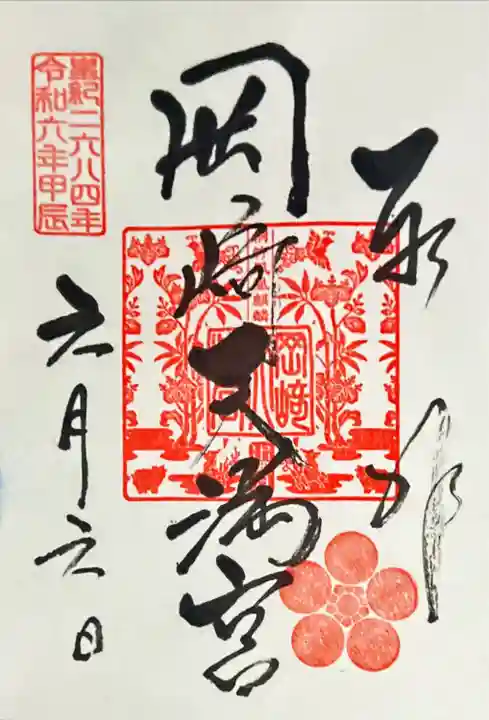 奉拝
岡崎天満宮
岡崎
皇紀二六八四年
令和六年甲辰
六月六日